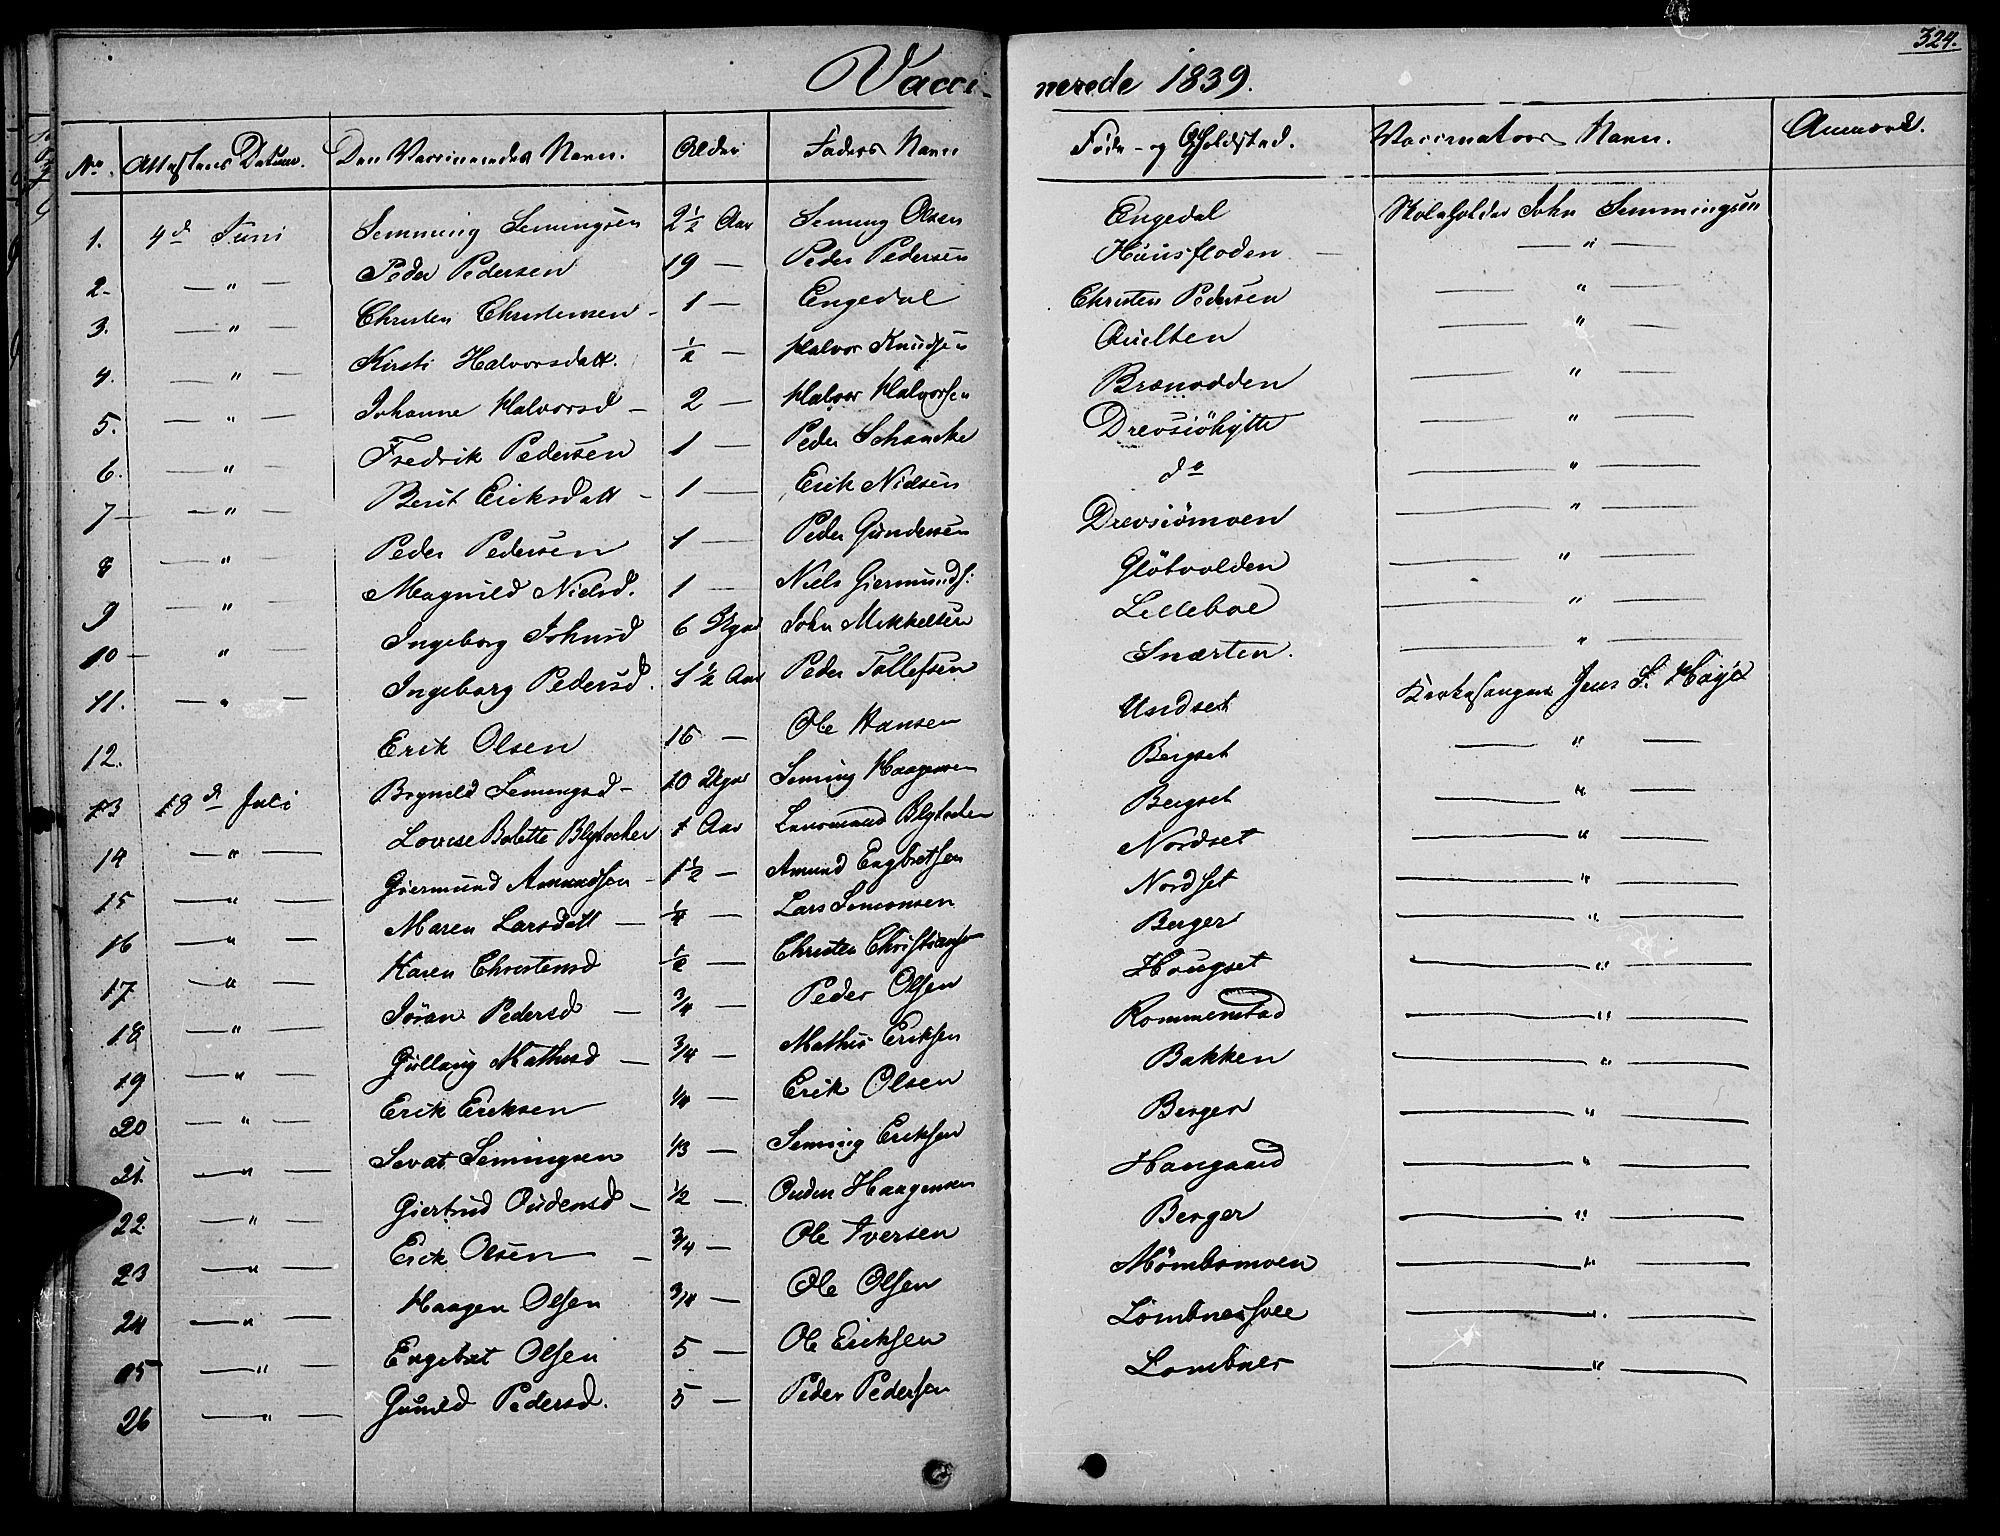 324.
Vacci- nerede 1839.
No. Attestens Datum. Den Vaccineredes Navn. Alder Faders Navn Føde- og Opholdsted. Vaccinateurs Navn. Anmærk.
1. 4d Juni Semming Semingsen 2 1/2 Aar Seming Olsen Engedal Skoleholder John Semmingsen
2. — " — Peder Pedersen 19 — Peder Pedersen Huusfloden — " —
3. — " — Christen Christensen 1 — Engedal Christen Pedersen — " —
4. — " — Kirsti Halvorsdatt. 1/2 — Halvor Knudsen Quilten — " —
5. — " — Johanne Halvorsd — 2 — Halvor Halvorsen Brænodden — " —
6. — " — Fredrik Pedersen 1 — Peder Schancke Drevsiöhytte — " —
7 — " — Berit Eriksdatt — 1 — Erik Nielsen do — " —
8 — " — Peder Pedersen 1 — Peder Gundersen Drevsiömoen — " —
9 — " — Magnild Nielsd. 1 — Niels Giermunds: Glötvolden — " —
10 — " — Ingeborg Johnsd 6 Uger John Mikkelsen Lilleboe — " —
11. — " — Ingeborg Pedersd. 1 1/2 Aar Peder Tollefsen Snærten. — " —
12. Erik Olsen 16 — Ole Hansen Undset Kirkesanger Jens S. Høye
13 18d Juli Bryneld Semingsd — 10 Uger Seming Haagensen Bergset — " —
14 — " — Lovise Bolette Blytecker 1 Aar Lensmand Blytecker Bergset — " —
15 — " — Giermund Amundsen — 1 1/2 — Amund Engbretsen Nordset — " —
16 — " — Maren Larsdatt — 1/4 — Lars Simonsen Nordset — " —
17 — " — Karen Christensd 1/2 — Christen Christians Berger — " —
18 — " — Jöran Pedersd — 3/4 — Peder Olsen Hougset — " —
19 — " — Gullaug Mathisd — 3/4 — Mathis Eriksen Rommenstad — " —
20 — " — Erik Eriksen 1/4 — Erik Olsen Bakken — " —
21. — " — Sevat Semingsen 1/3 — Seming Eriksen Berger — " —
22. — " — Giertrud Oudensd — 1/2 — Ouden Haagensen Haugaard — " —
23 — " — Erik Olsen — 3/4 — Ole Iversen Berger — " —
24 — " — Haagen Olsen 3/4 — Ole Olsen Mømbsmoen — " —
25 — " — Engebret Olsen 5 — Ole Eriksen Lombnes — " —
26 — " — Gunild Pedersd. 5 — Peder Pedersen Lombnes — " —